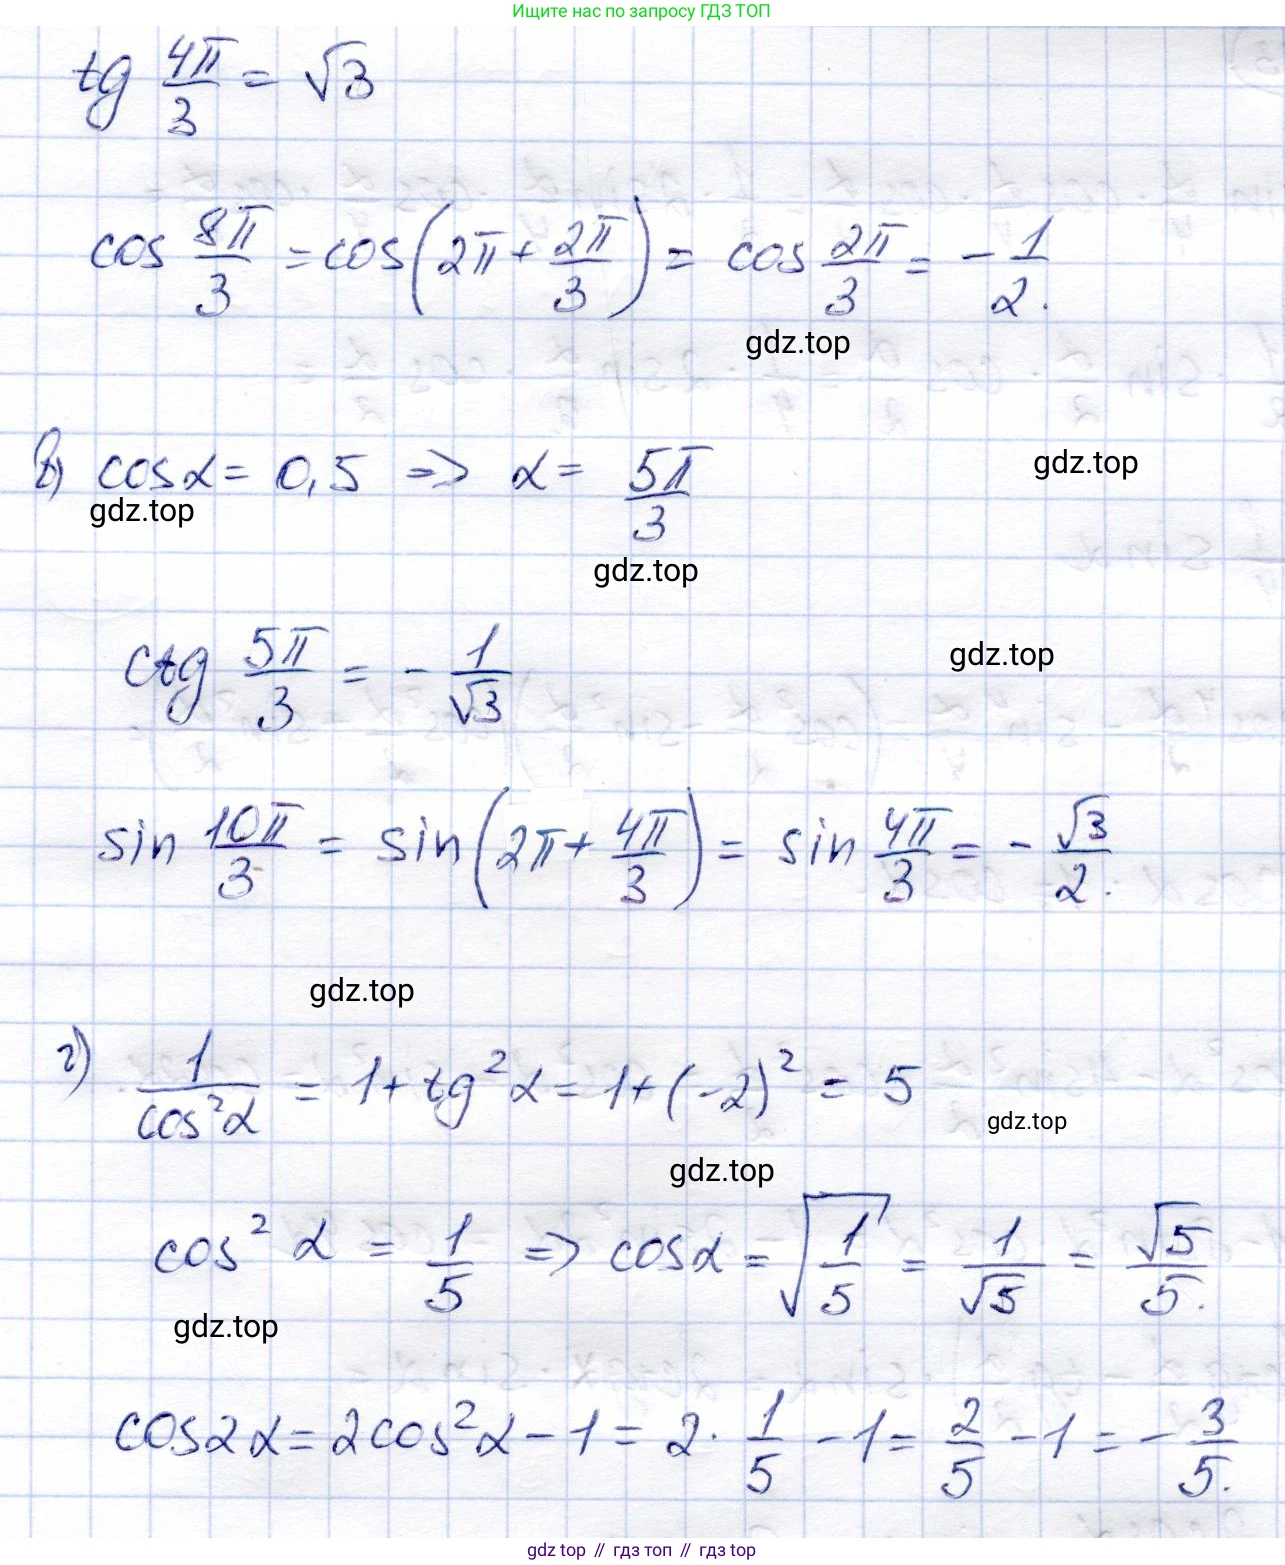 Ищите нас по запросу ГДЗ ТОП
tg 4π/3 = √3
cos 8π/3 = cos(2π + 2π/3) = cos 2π/3 = - 1/2.
gdz.top
в) cos α = 0,5 => α = 5π/3
gdz.top
gdz.top
gdz.top
ctg 5π/3 = - 1/√3
gdz.top
sin 10π/3 = sin(2π + 4π/3) = sin 4π/3 = - √3/2.
gdz.top
г) 1/cos²α = 1 + tg²α = 1 + (-2)² = 5
gdz.top
gdz.top
cos² α = 1/5 => cos α = √(1/5) = 1/√5 = √5/5.
gdz.top
cos 2α = 2cos²α - 1 = 2 · 1/5 - 1 = 2/5 - 1 = - 3/5.
gdz top // гдз топ // гдз top